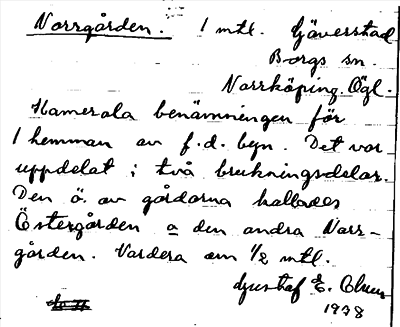 Norrgården. 1 mtl. Gäverstad
Borgs sn.
Norrköping. Ögl.
Kamerala benämningen för
1 hemman av f.d. byn. Det var
uppdelat i två brukningsdelar.
Den ö. av gårdarna kallades
Östergården o den andra Norr-
gården. Vardera om 1/2 mtl.
Gustaf E. Olsson
1938